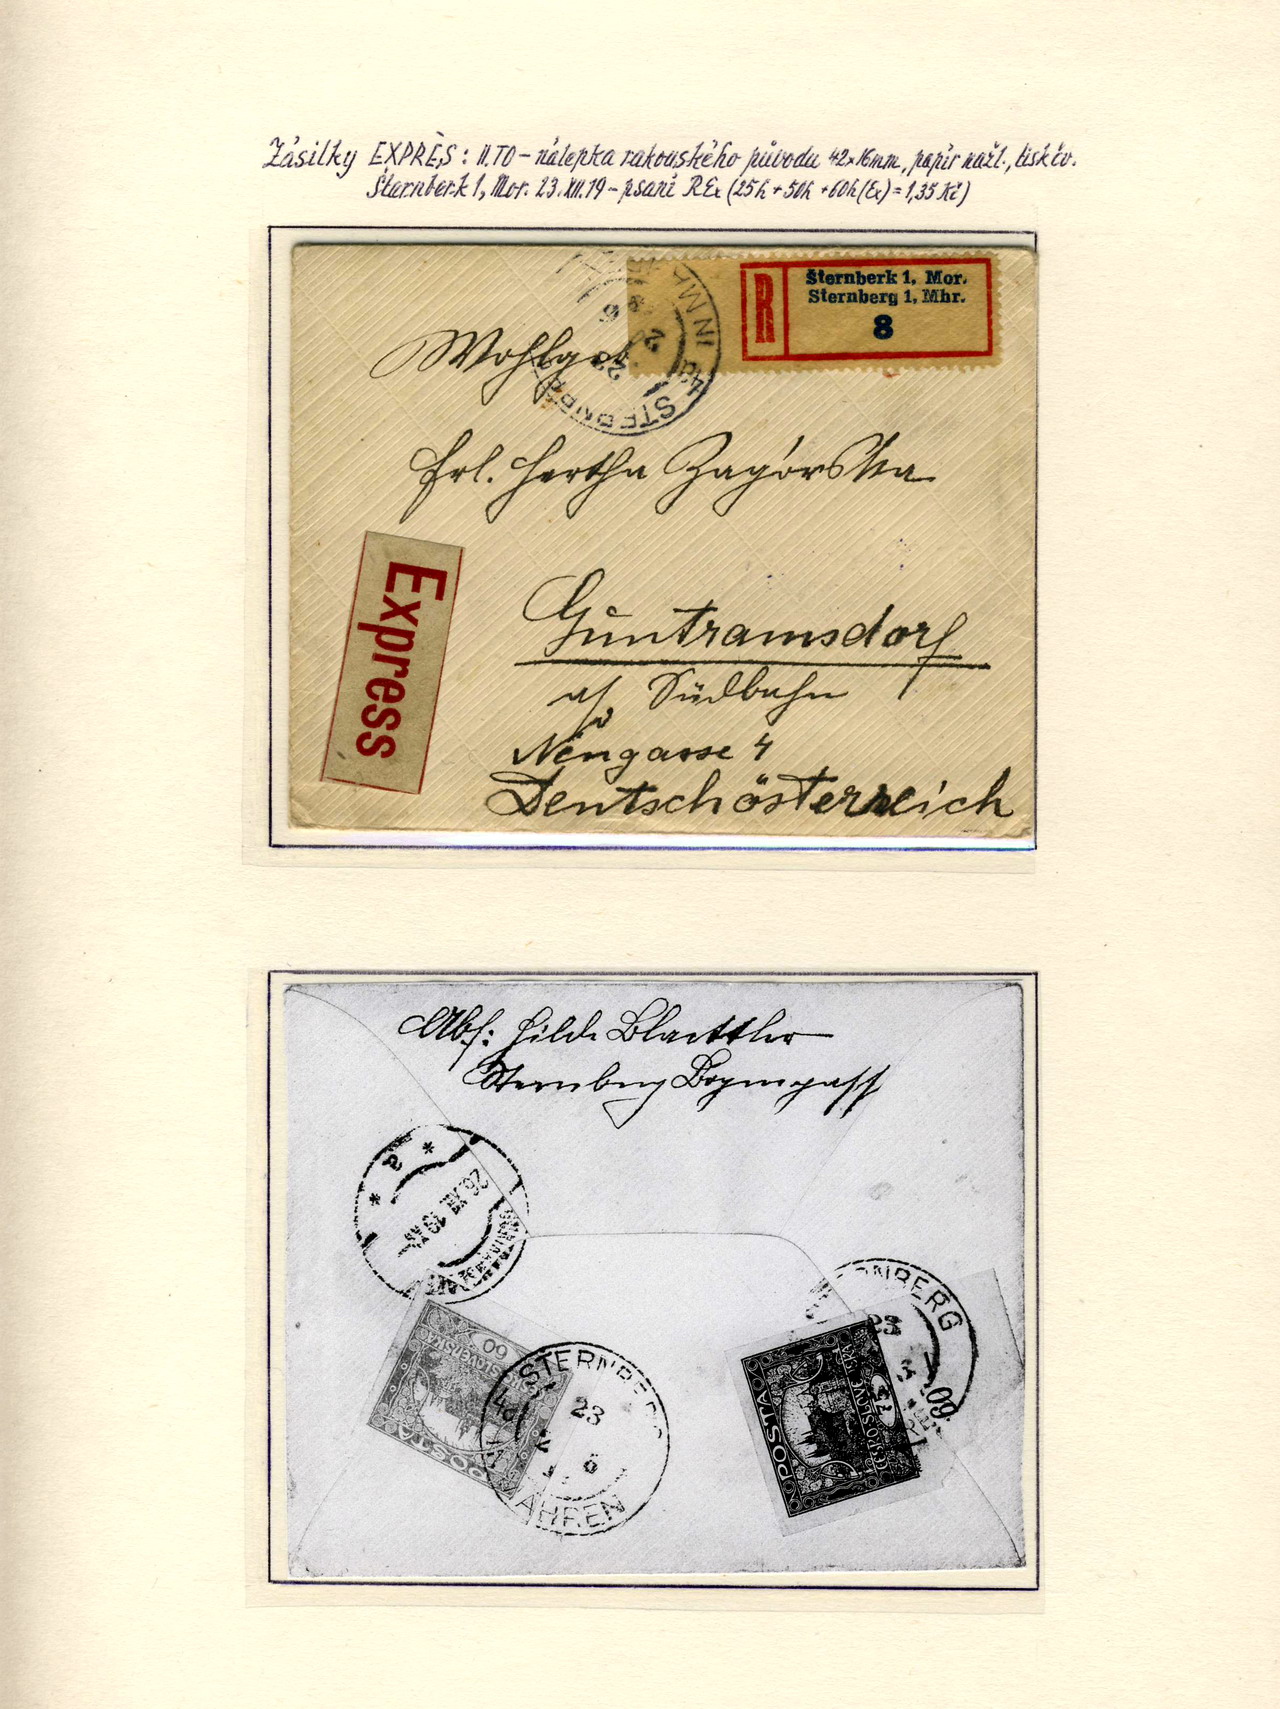 Zásilky EXPRÈS: II.TO – nálepka rakouského původu 42×16mm, papír nažl., tisk čv.
Šternberk 1, Mor. 23.XII.19 – psaní REx (25h + 50h + 60h (Ex) = 1,35 Kč)
R
Šternberk 1, Mor.
Sternberg 1, Mhr.
8
STERNBERG IN M
4d
23
Wohlgeb
Frl. Hertha Zagórska
Express
Guntramsdorf
a/d Südbahn
Neugasse 4
Deutschösterreich
Abs: Hilde Blaettler
Sternberg
26.XII.19
60
POSTA
STERNBERG
4d
23
6
MÄHREN
STERNBERG
23
75
POSTA
ČESKO-SLOVENSKÁ